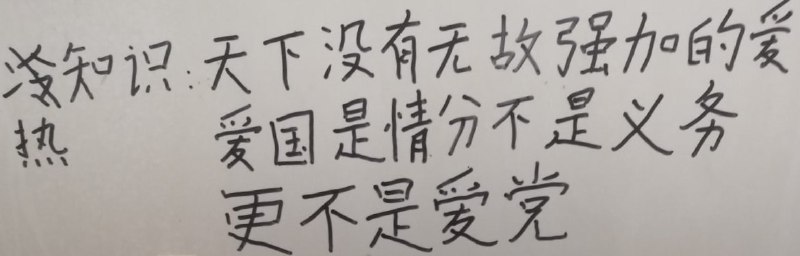 知识:天下没有无故强加的爱
热 爱国是情分不是义务
更不是爱党